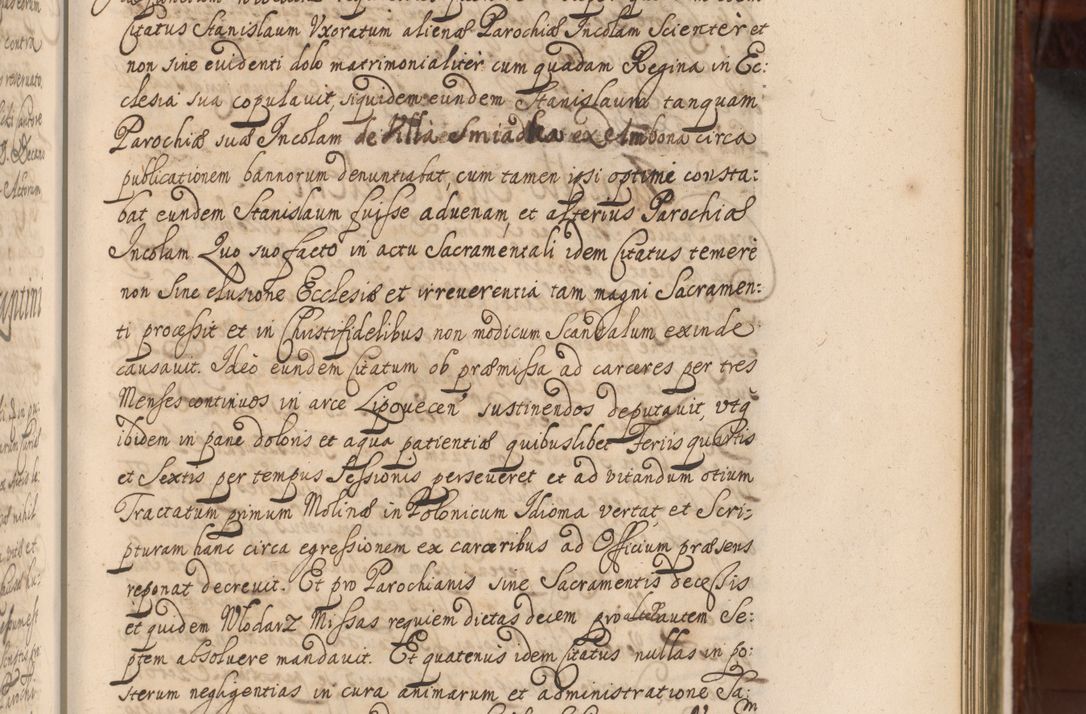 Citatus Stanislaum Uxoratum alienæ Parochiæ Incolam Scienter et
non sine evidenti dolo matrimonialiter cum quadam Regina in Ec:
clesia sua copulavit, siquidem eundem Stanislaum tanquam
Parochiæ suæ Incolam de Villa Smiadka ex Ambona circa
publicationem bannorum denuntiabat, cum tamen ipsi optime consta:
bat eundem Stanislaum fuisse advenam, et alterius Parochiæ
Incolam Quo suo facto in actu Sacramentali idem Citatus temere
non sine elusione Ecclesiæ et irreverentia tam magni Sacramen:
ti processit et in Christifidelibus non modicum Scandalum exinde
causavit. Ideò eundem Citatum ob præmissa ad carceres per tres
Menses continuos in arce Lipovecen sustinendos deputavit, utq
ibidem in pane doloris et aqua patientiæ quibuslibet Feriis quartis
et Sextis per tempus Sessionis perseveret et ad vitandum otium
Tractatum primum Molinæ in Polonicum Idioma vertat et Scri:
pturam hanc circa egressionem ex carceribus ad Officium præsens
reponat decrevit. Et pro Parochianis sine Sacramentis decessis
et quidem Włodarz Missas requiem dictas decem pro altera autem Se:
ptem absolvere mandavit. Et quatenus idem Citatus nullas in po:
sterum negligentias in cura animarum et administratione Sa: